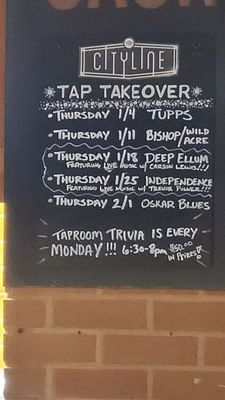 CITYLINE
TAP TAKEOVER
• THURSDAY 1/4 TUPPS
• THURSDAY 1/11 BISHOP/WILD ACRE
• THURSDAY 1/18 DEEP ELLUM
FEATURING LIVE MUSIC w/ CARSON LEWIS!!!
• THURSDAY 1/25 INDEPENDENCE
FEATURING LIVE MUSIC w/ TREVOR
• THURSDAY 2/1 OSKAR BLUES
TAPROOM TRIVIA IS EVERY
MONDAY!!! 6:30-8PM $50.00 IN PRIZES!